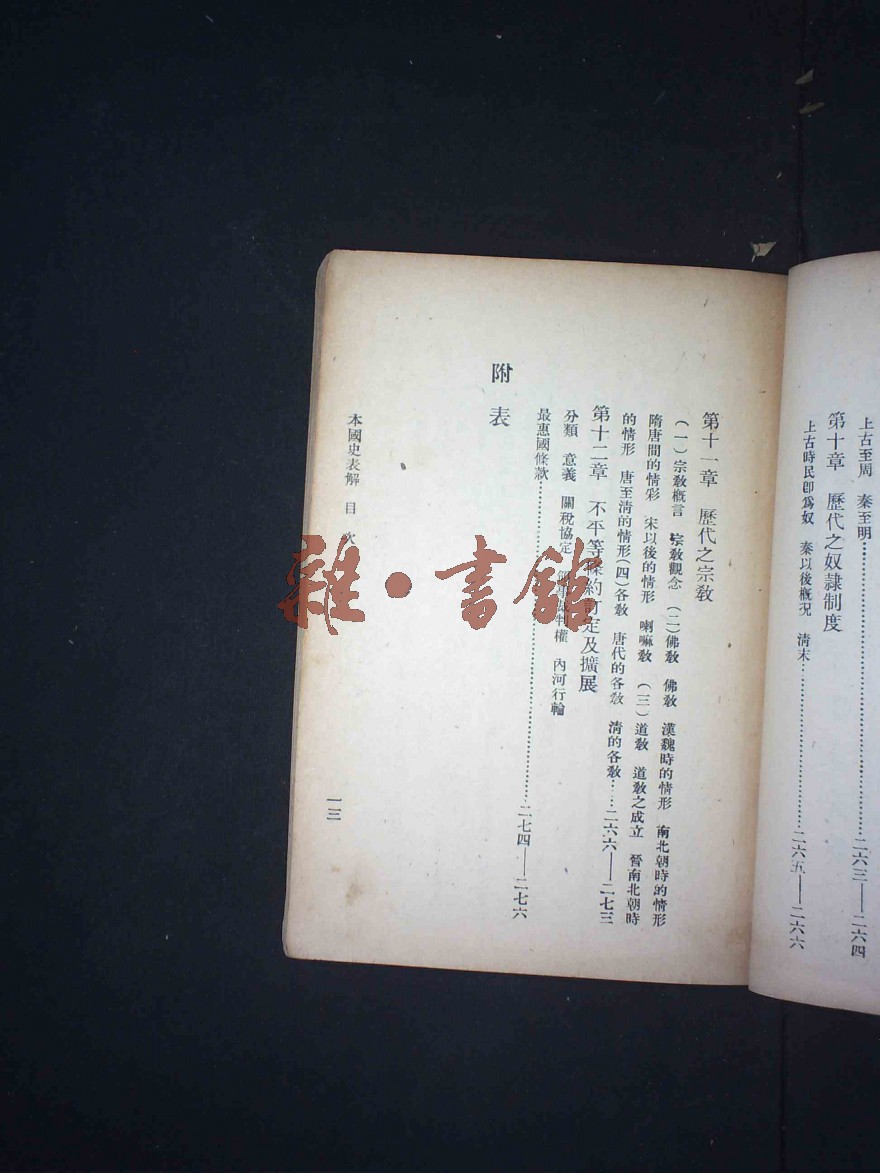 上古至周　秦至明……二六三——二六四
第十章　歷代之奴隸制度
上古時民卽爲奴　秦以後槪況　淸末……二六五——二六六
第十一章　歷代之宗敎
（一）宗敎槪言　宗敎觀念　（二）佛敎　佛敎　漢魏時的情形　南北朝時的情形
隋唐間的情彩　宋以後的情形　喇嘛敎　（三）道敎　道敎之成立　晉南北朝時
的情形　唐至淸的情形（四）各敎　唐代的各敎　淸的各敎……二六六——二七三
第十二章　不平等條約訂定及擴展
分類　意義　關稅協定　領事裁判權　內河行輪
最惠國條款……二七四——二七六
附　表
本國史表解　目　次
一三
雜·書館